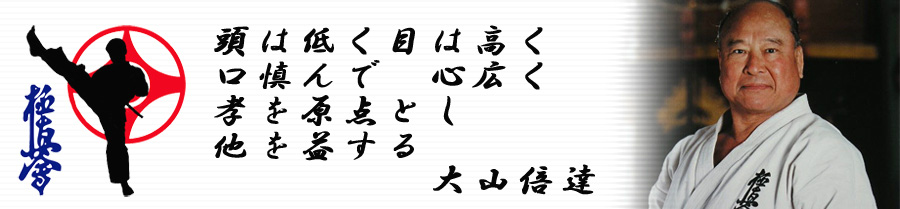 頭は低く目は高く
口慎んで心広く
孝を原点とし
他を益する
大山倍達
極真会
極真会